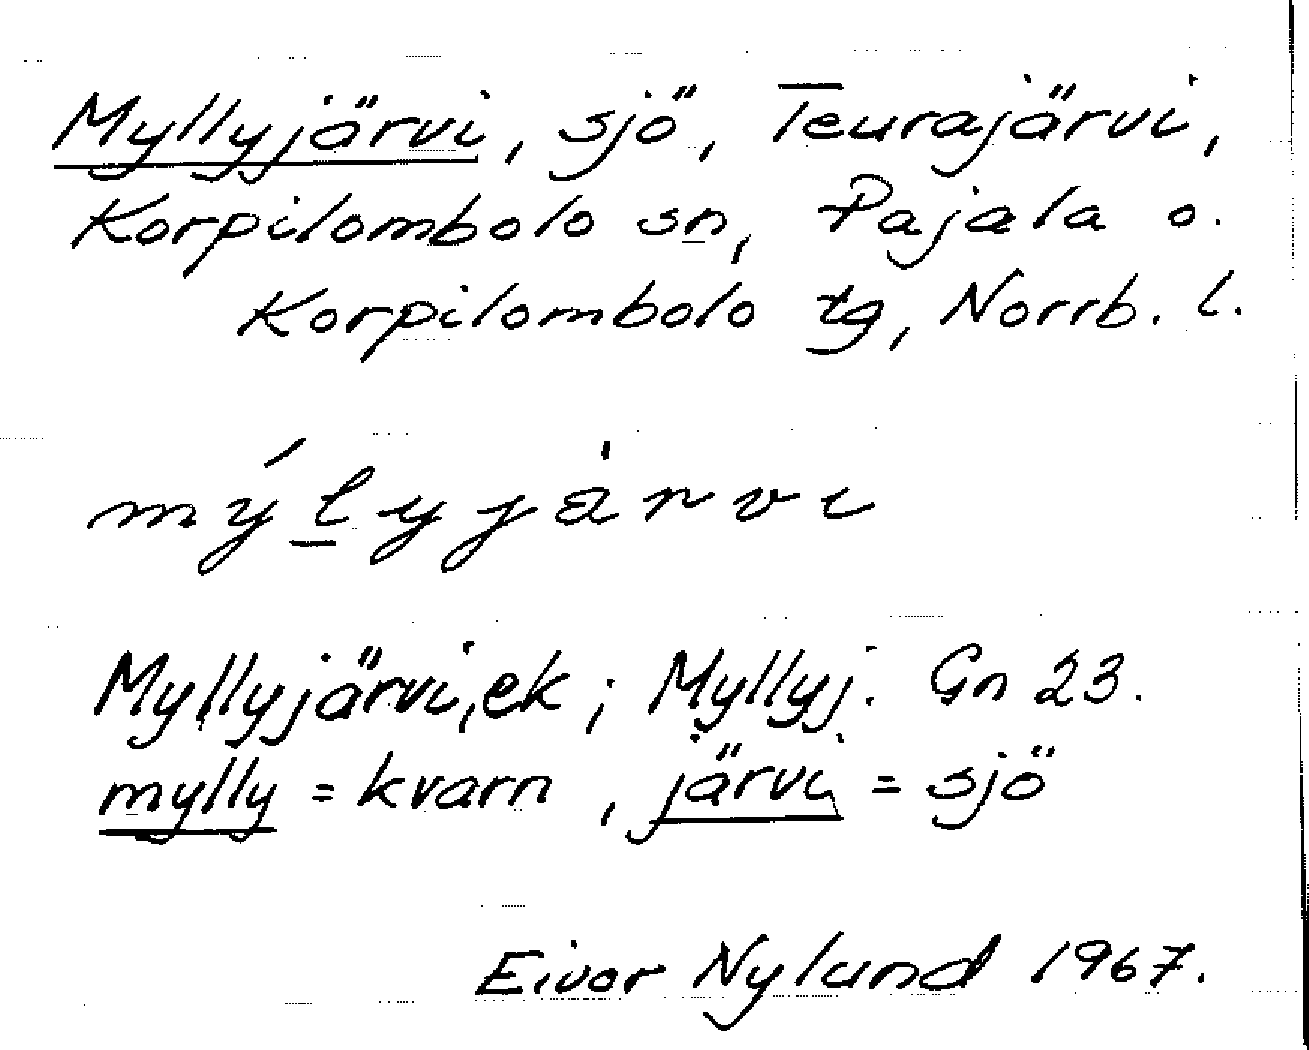 Myllyjärvi, sjö, Teurajärvi,
Korpilombolo sn, Pajala o.
Korpilombolo tg, Norrb. l.
mýl̲yjȧrvi
Myllyjärvi, ek; Myllyj. Gn 23.
mylly = kvarn, järvi = sjö
Eivor Nylund 1967.